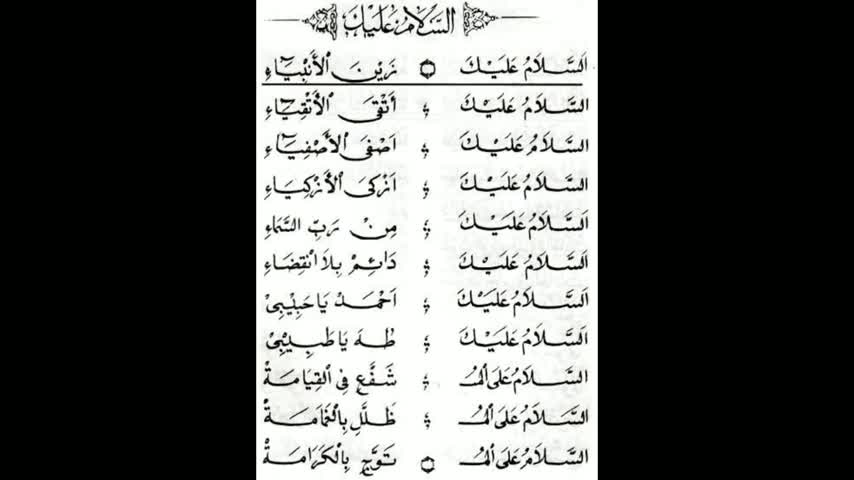 السَّلَامُ عَلَيْكَ
اَلسَّلَامُ عَلَيْكَ زَيْنَ الْأَنْبِيَاءِ
اَلسَّلَامُ عَلَيْكَ أَتْقَى الْأَتْقِيَاءِ
اَلسَّلَامُ عَلَيْكَ اَصْفَى الْأَصْفِيَاءِ
اَلسَّلَامُ عَلَيْكَ اَزْكَى الْأَزْكِيَاءِ
اَلسَّلَامُ عَلَيْكَ مِنْ رَبِّ السَّمَاءِ
اَلسَّلَامُ عَلَيْكَ دَائِمْ بِلَا انْقِضَاءِ
اَلسَّلَامُ عَلَيْكَ اَحْمَدْ يَا حَبِيْبِيْ
اَلسَّلَامُ عَلَيْكَ طٰهَ يَا طَبِيْبِيْ
اَلسَّلَامُ عَلَى الْمُـ شَفَّعِ فِي الْقِيَامَةْ
اَلسَّلَامُ عَلَى الْمُـ ظَلَّلِ بِالْغَمَامَةْ
اَلسَّلَامُ عَلَى الْمُـ تَوَّجِ بِالْكَرَامَةْ